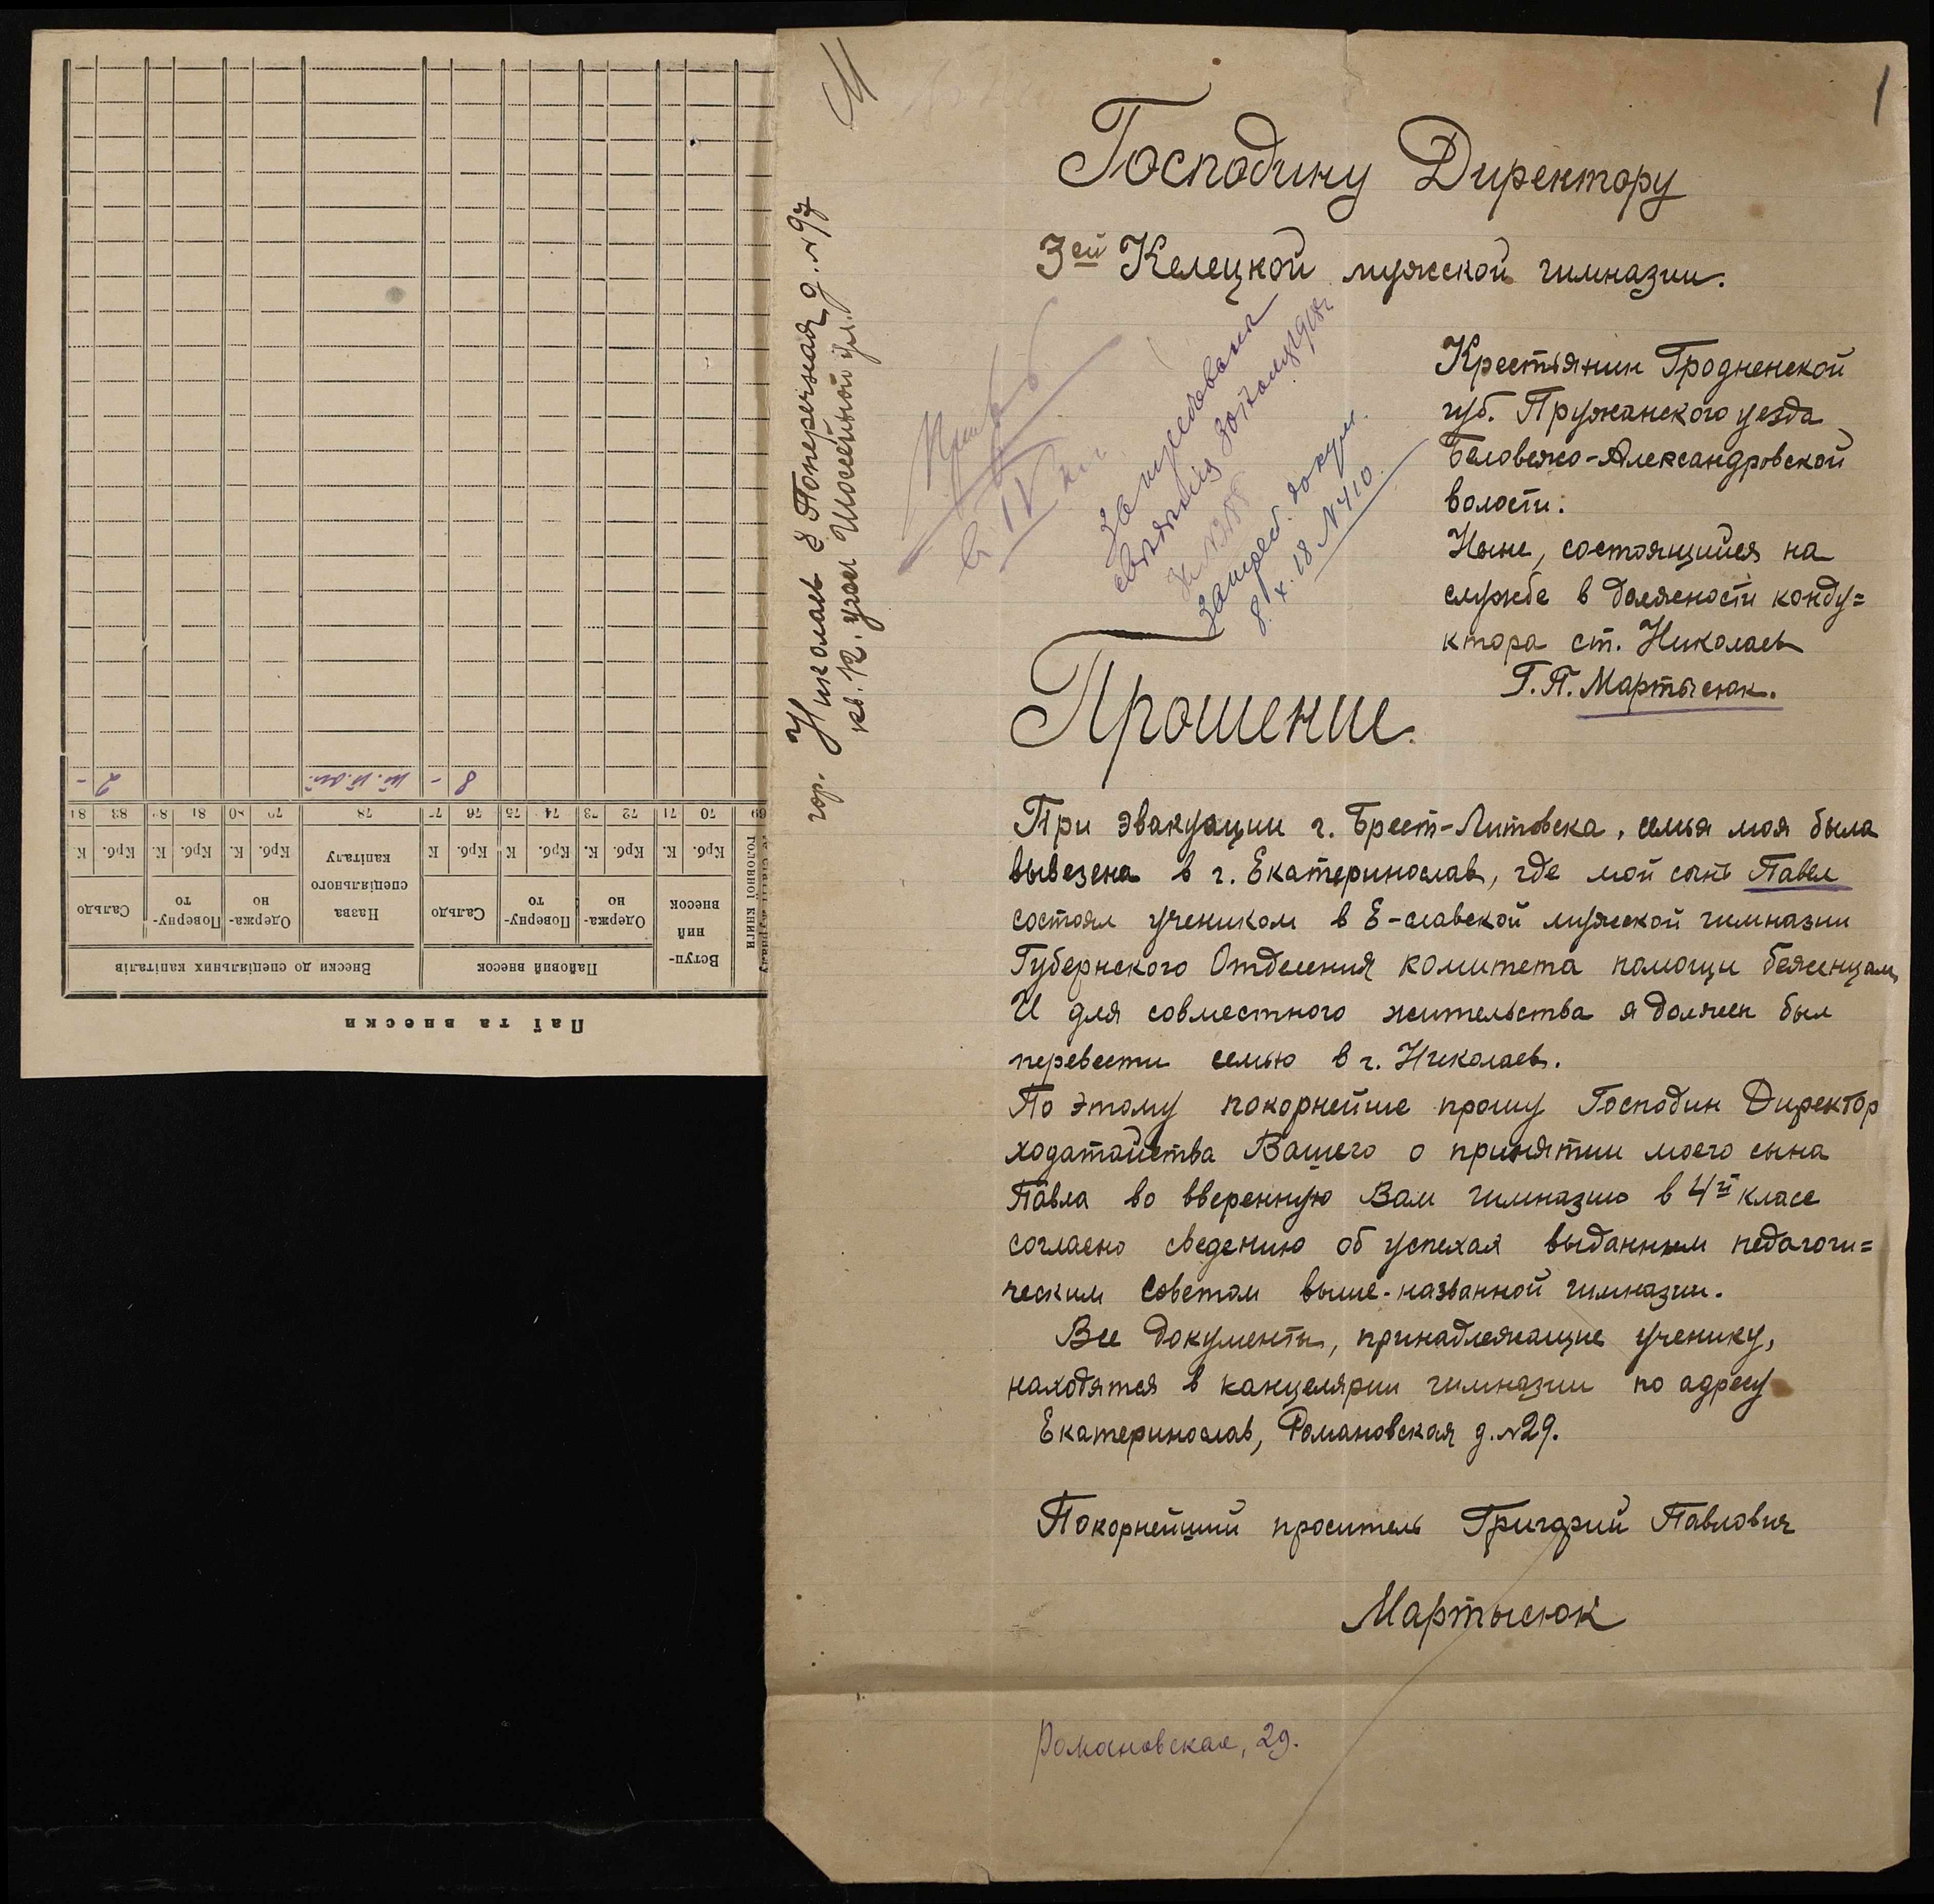 1
М
Господину Директору
3ей Келецкой мужской гимназии.
Крестьянин Гродненской
губ. Пружанского уезда
Беловежо-Александровской
волости.
Ныне, состоящийся на
службе в должности конду=
ктора ст. Николаев
Г. П. Мартысюк.
в IV кл
Затребованы
сведения
Затреб. докум.
8. X. 18 N 410.
Прошение.
При эвакуации г. Брест-Литовска, семья моя была
вывезена в г. Екатеринослав, где мой сынъ Павел
состоял учеником в Е-славской мужской гимназии
Губернского Отделения комитета помощи беженцам.
И для совместного жительства я должен был
перевести семью в г. Николаев.
По этому покорнейше прошу Господин Директор
ходатайства Вашего о принятии моего сына
Павла во вверенную Вам гимназию в 4й класс
согласно сведению об успехах выданным педагоги=
ческим советом выше-названной гимназии.
Все документы, принадлежащие ученику,
находятся в канцелярии гимназии по адресу
Екатеринослав, Романовская д. №29.
Покорнейший проситель Григорий Павлович
Мартысюк
Романовская, 29.
гор. Николаев 8 Поперечная д. № 97
кв. 12. угол Шоссейной ул.
Паї та внески
Вступ-
ний
внесок
Пайовий внесок
Внески до спеціяльних капіталів
Одержа-
но
Поверну-
то
Сальдо
Назва
спеціяльного
капіталу
Одержа-
но
Поверну-
то
Сальдо
Крб. К. Крб. К. Крб. К Крб. К Крб. К. Крб. К. Крб. К.
69 70 71 72 73 74 75 76 77 78 79 80 81 82 83 84
8 -
2 -
головної книги